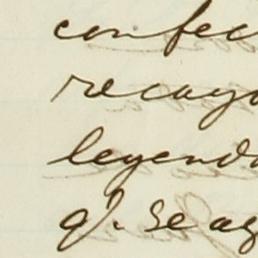 confec
recayo
legenda
q. se ag